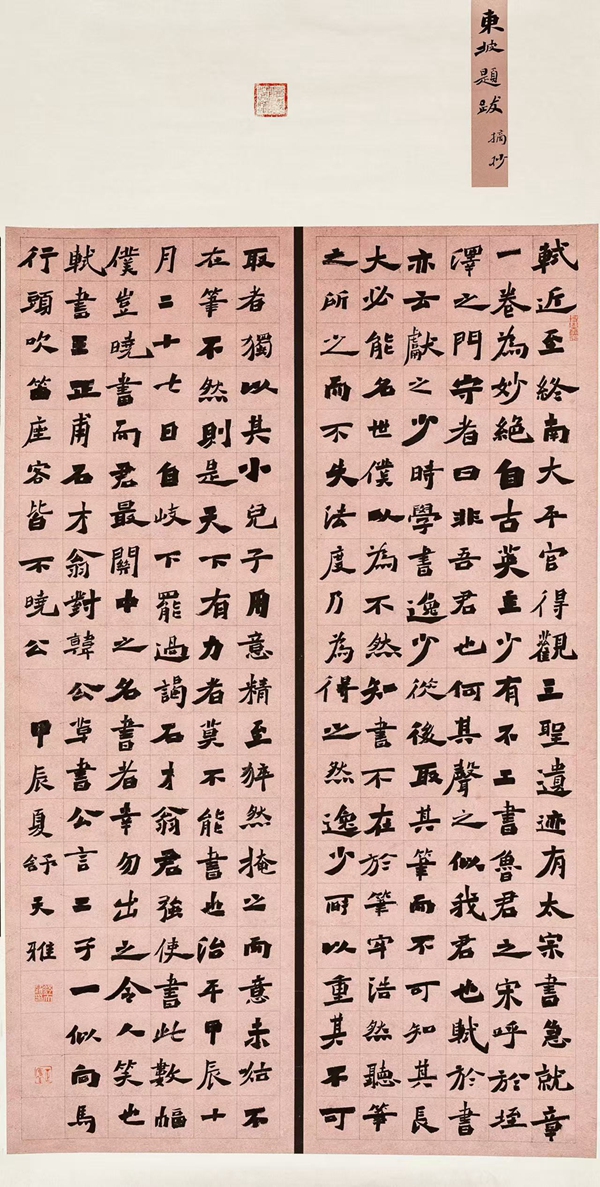 東坡題跋 摘抄
軾近至終南大平官得觀三聖遺迹有太宗書急就章
一卷為妙絕自古英主少有不工書魯君之宋呼於垤
澤之門守者曰非吾君也何其聲之似我君也軾於書
亦云獻之少時學書逸少從後取其筆而不可知其長
大必能名世僕以為不然知書不在於筆牢浩然聽筆
之所之而不失法度乃為得之然逸少所以重其不可
取者獨以其小兒子用意精至猝然掩之而意未始不
在筆不然則是天下有力者莫不能書也治平甲辰十
月二十七日自岐下罷過謁石才翁君強使書此數幅
僕豈曉書而君最關中之名書者幸勿出之令人笑也
軾書王正甫石才翁對韓公草書公言二子一似向馬
行頭吹笛座客皆不曉公 甲辰夏舒天雅